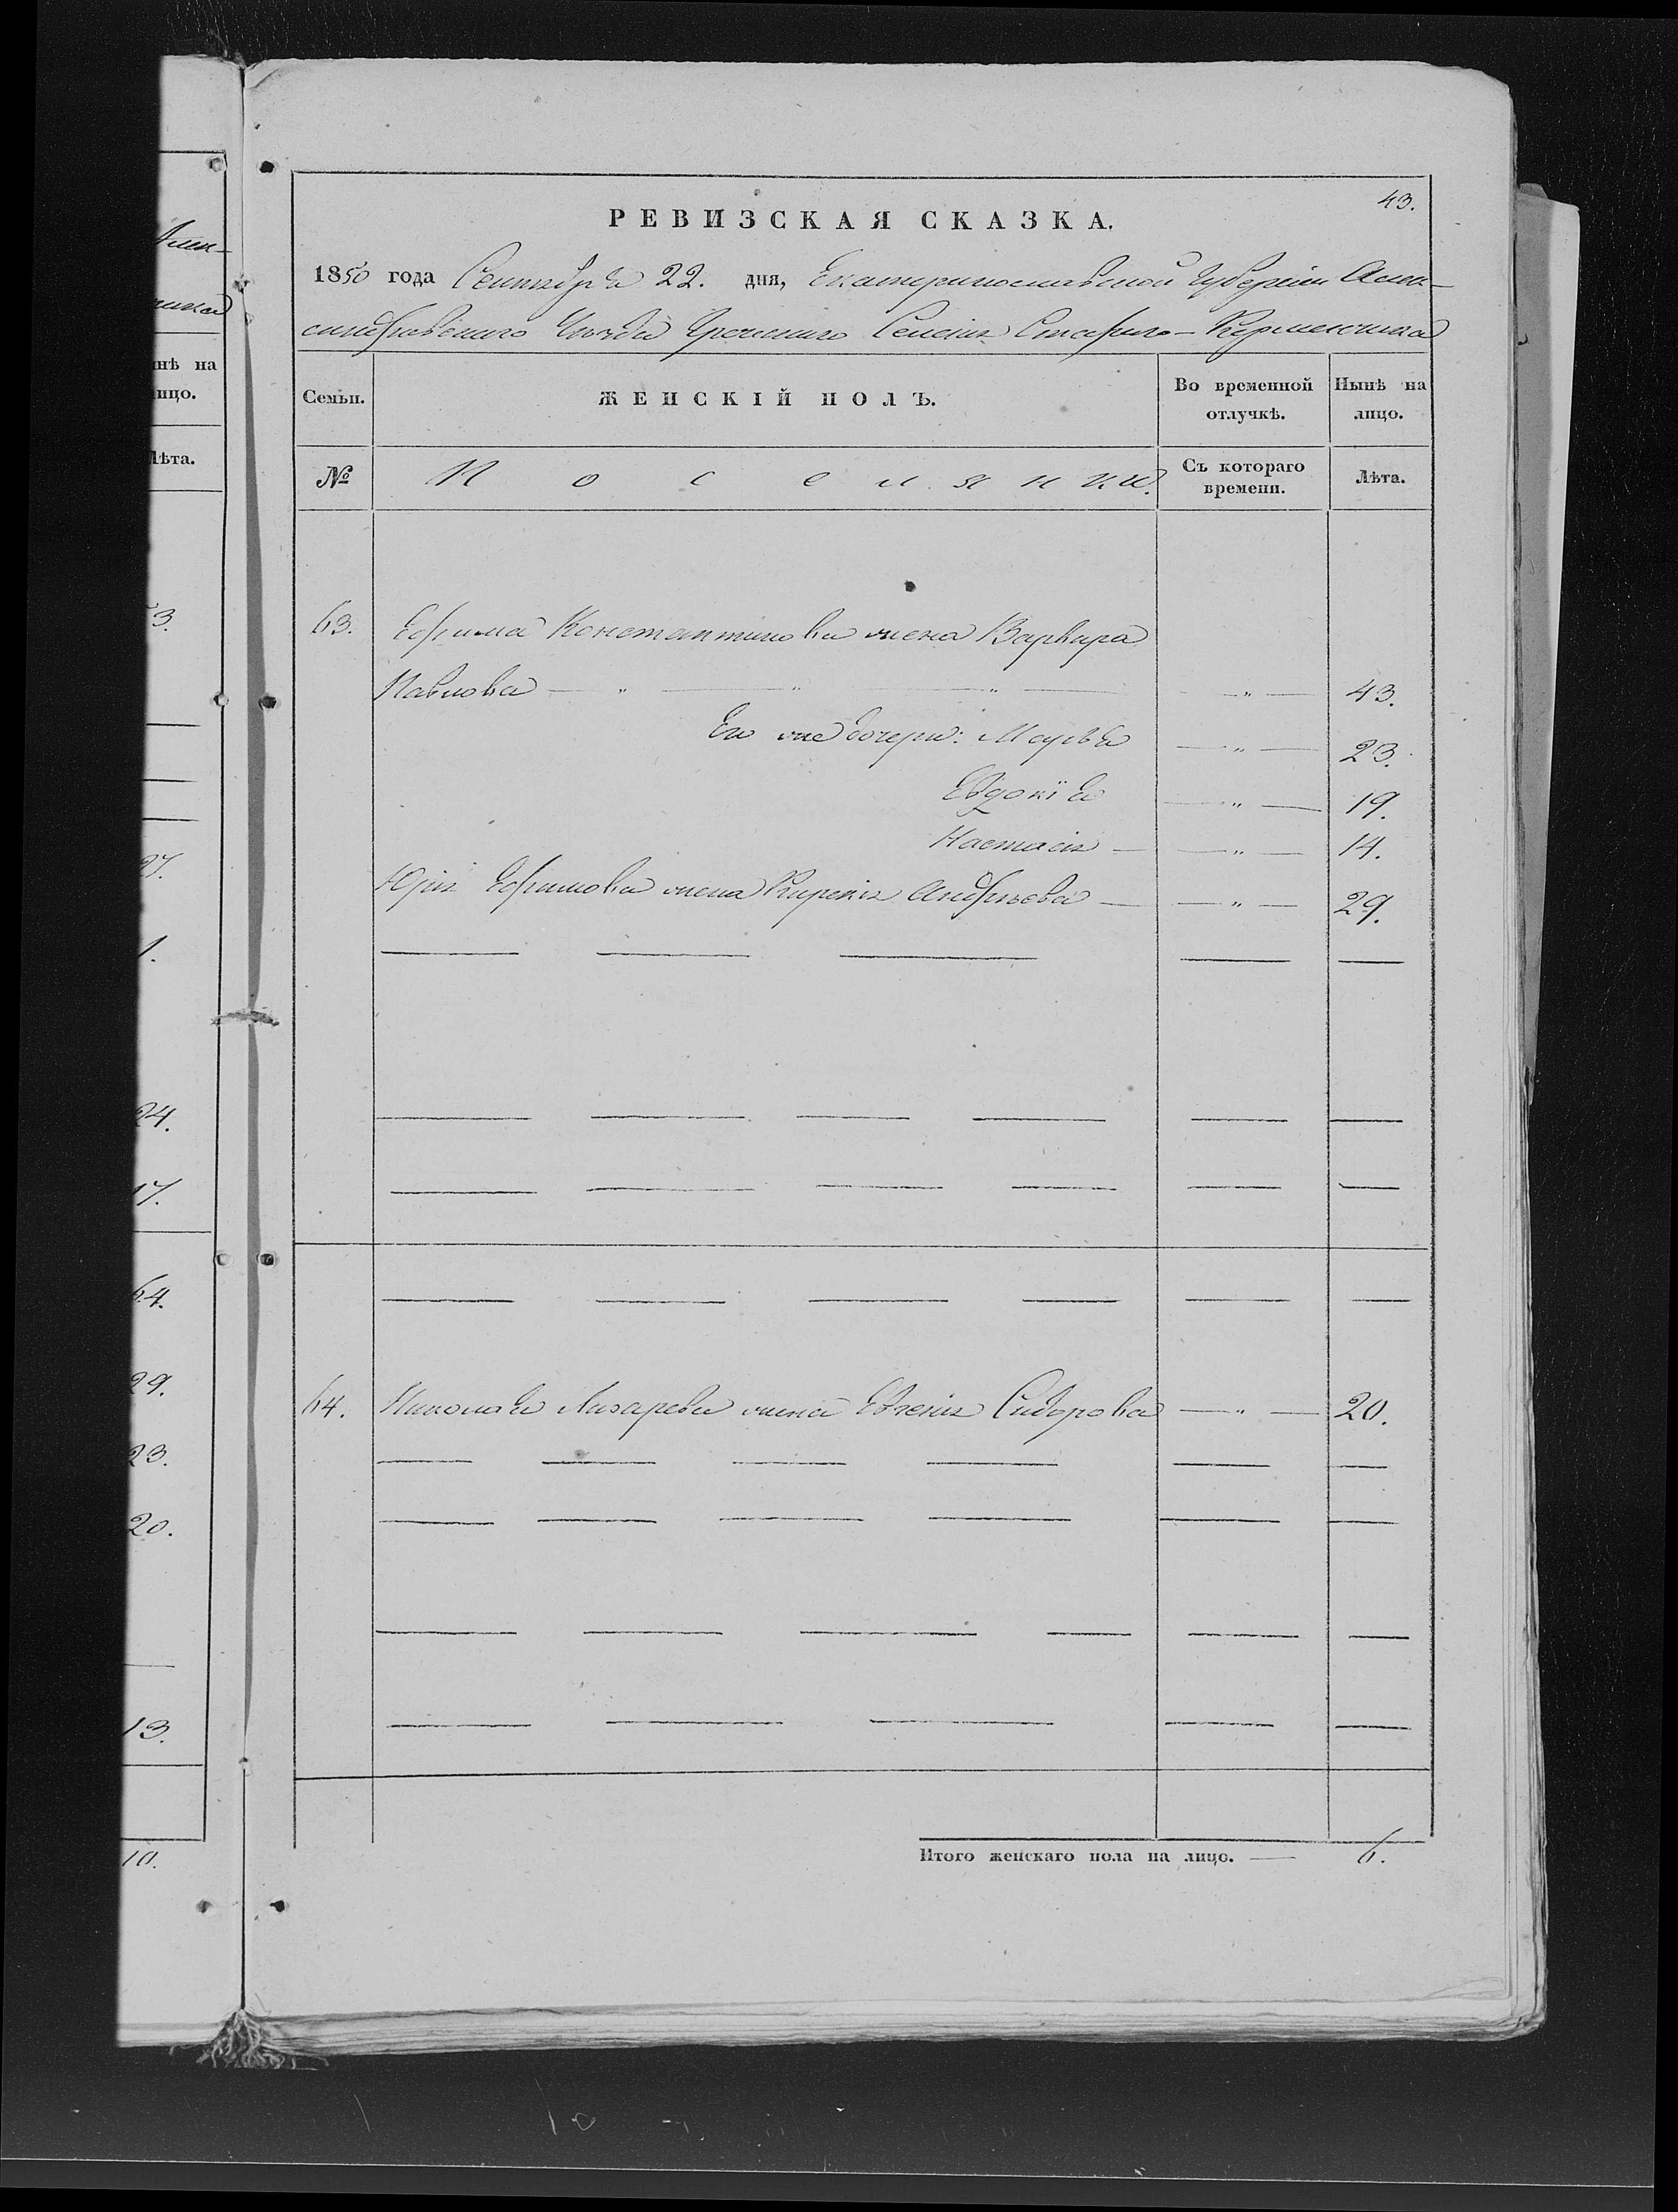 43.
РЕВИЗСКАЯ СКАЗКА.
1850 года Сентября 22. дня, Екатеринославской Губернiи Алек-
сандровскаго Уѣзда Греческаго Селенiя Стараго-Керменчика
Семьи.
ЖЕНСКIЙ ПОЛЪ.
Во временной отлучкѣ.
Нынѣ на лицо.
№
Поселянки.
Съ котораго времени.
Лѣта.
63. Ефима Константинова жена Варвара
Павлова — „ — „ — „ — — „ — 43.
Ея же дочери: Марья — „ — 23.
Евдокiя — „ — 19.
Настасiя — — „ — 14.
Юрiя Ефимова жена Кирекiя Андреева — — „ — 29.
64. Николая Лазарева жена Евгенiя Сидорова — „ — 20.
Итого женскаго пола на лицо. — 6.
нѣ на
ицо.
Лѣта.
3.
27.
1.
24.
17.
64.
29.
23.
20.
13.
10.